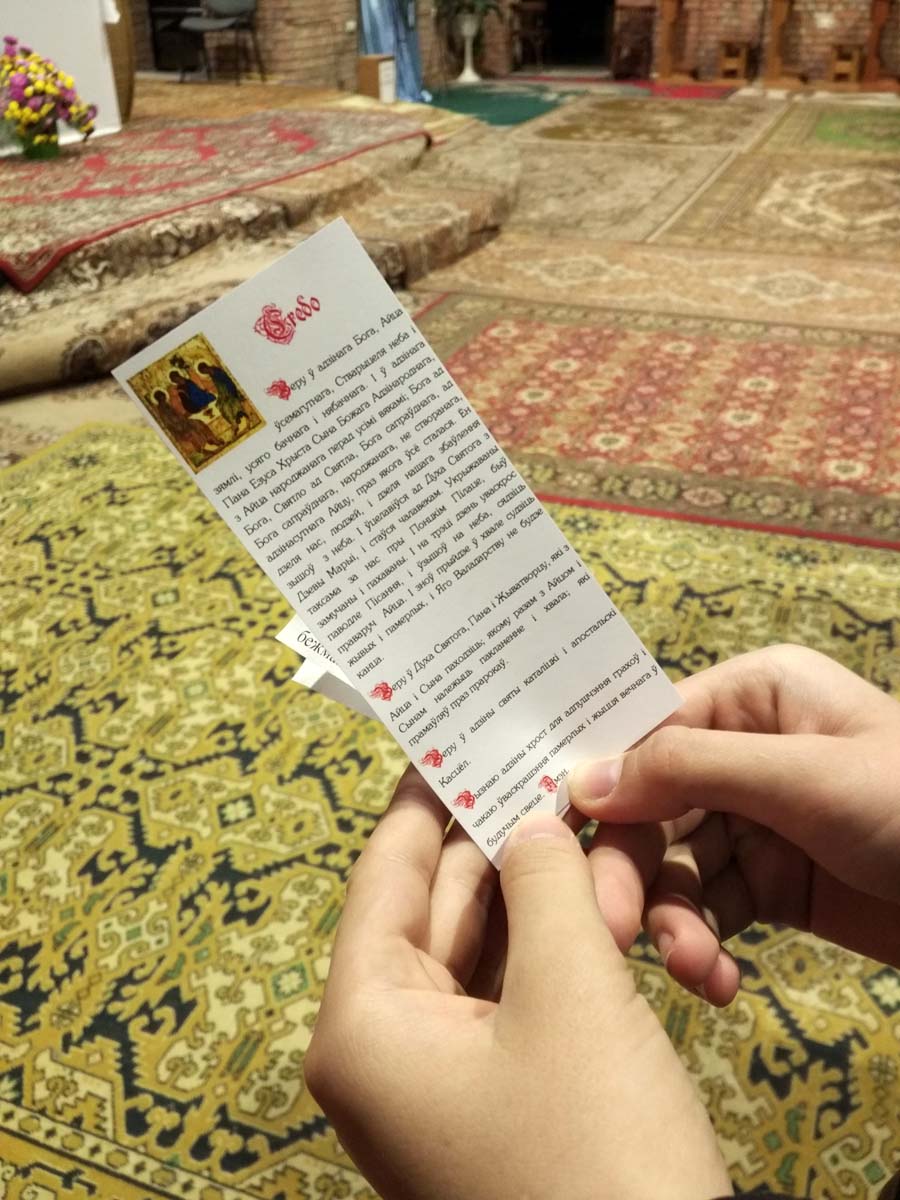 Credo
Веру ў адзінага Бога, Айца
ўсемагутнага, Стварыцеля неба і
зямлі, усяго бачнага і нябачнага. І ў адзінага
Пана Езуса Хрыста Сына Божага Адзінароднага,
з Айца народжанага перад усімі вякамі; Бога ад
Бога, Святло ад Святла, Бога сапраўднага, ад
Бога сапраўднага, народжанага, не створанага,
адзінасутнага Айцу, праз якога ўсё сталася. Ён
дзеля нас, людзей, і дзеля нашага збаўлення
зышоў з неба. І ўцелавіўся ад Духа Святога з
Дзевы Марыі, і стаўся чалавекам. Укрыжаваны
таксама за нас пры Понцкім Пілаце, быў
замучаны і пахаваны. І на трэці дзень уваскрос
паводле Пісання, і ўзышоў на неба, сядзіць
праваруч Айца. І зноў прыйдзе ў хвале судзіць
жывых і памерлых, і Яго Валадарству не будзе
канца.
Веру ў Духа Святога, Пана і Жыватворцу, які з
Айца і Сына паходзіць; якому разам з Айцом і
Сынам належыць пакланенне і хвала; які
прамаўляў праз прарокаў.
Веру ў адзіны святы каталіцкі і апостальскі
Касцёл.
Вызнаю адзіны хрост для адпушчэння грахоў і
чакаю ўваскрашэння памерлых і жыцця вечнага ў
будучым свеце. Амэн.